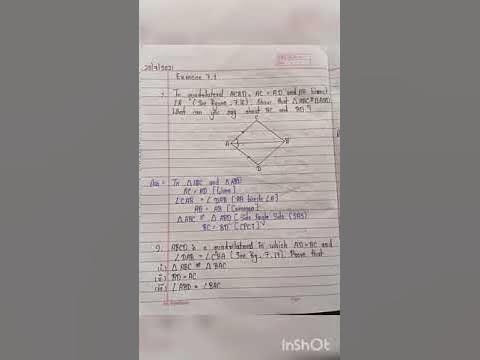 20/7/2021
Exercise 7.1
1. In quadrilateral ACBD, AC = AD and AB bisect
∠A (See figure, 7.16). Show that △ABC ≅ △ABD
What can you say about BC and BD?
C
A
B
D
Ans = In △ABC and △ABD
AC = AD [Given]
∠CAB = ∠DAB [AB bisects ∠A]
AB = AB [Common]
△ABC ≅ △ABD [Side Angle Side (SAS)]
BC = BD [CPCT]
2. ABCD is a quadrilateral in which AD = BC and
∠DAB = ∠CBA (See fig. 7.17). Prove that
(i) △ABC ≅ △BAC
(ii) BD = AC
(iii) ∠ABD = ∠BAC
InShOt